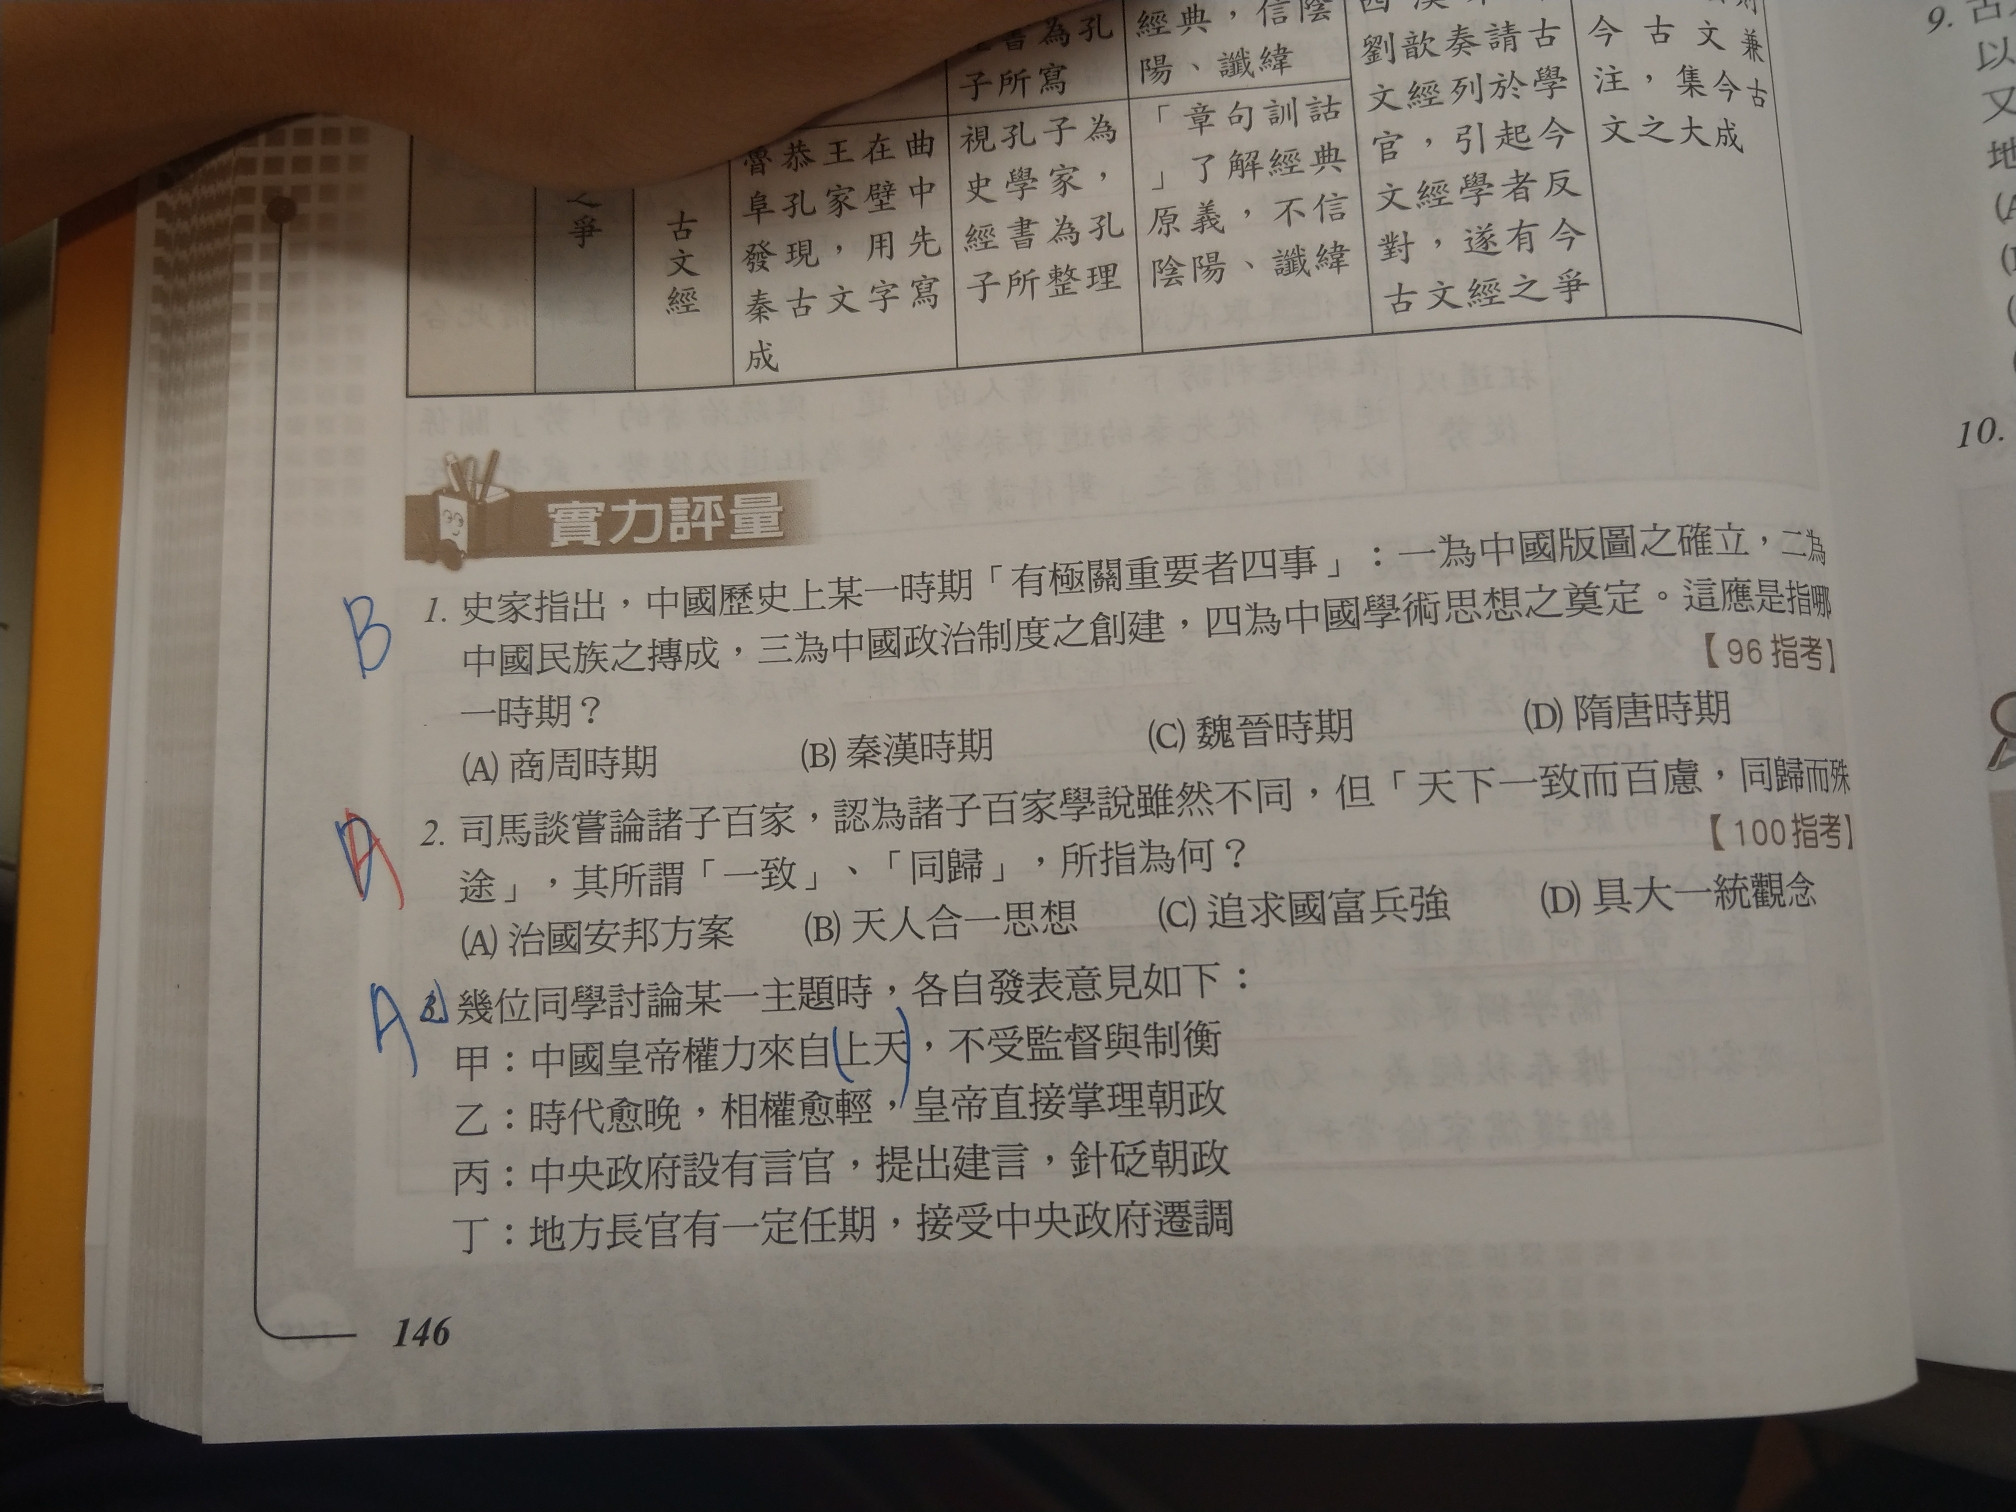 書為孔
子所寫
經典，信陰
陽、讖緯
劉歆奏請古
文經列於學
官，引起今
文經學者反
對，遂有今
古文經之爭
今古文
兼
注，集今古
文之大成
之爭
古文經
魯恭王在曲
阜孔家壁中
發現，用先
秦古文字寫
成
視孔子為
史學家，
經書為孔
子所整理
「章句訓詁
」了解經典
原義，不信
陰陽、讖緯
實力評量
B
1. 史家指出，中國歷史上某一時期「有極關重要者四事」：一為中國版圖之確立，二為
中國民族之摶成，三為中國政治制度之創建，四為中國學術思想之奠定。這應是指哪
一時期？
【96 指考】
(A) 商周時期 (B) 秦漢時期 (C) 魏晉時期 (D) 隋唐時期
A
2. 司馬談嘗論諸子百家，認為諸子百家學說雖然不同，但「天下一致而百慮，同歸而殊
途」，其所謂「一致」、「同歸」，所指為何？
【100 指考】
(A) 治國安邦方案 (B) 天人合一思想 (C) 追求國富兵強 (D) 具大一統觀念
A
3. 幾位同學討論某一主題時，各自發表意見如下：
甲：中國皇帝權力來自上天，不受監督與制衡
乙：時代愈晚，相權愈輕，皇帝直接掌理朝政
丙：中央政府設有言官，提出建言，針砭朝政
丁：地方長官有一定任期，接受中央政府遷調
146
9.
以
又
地
10.